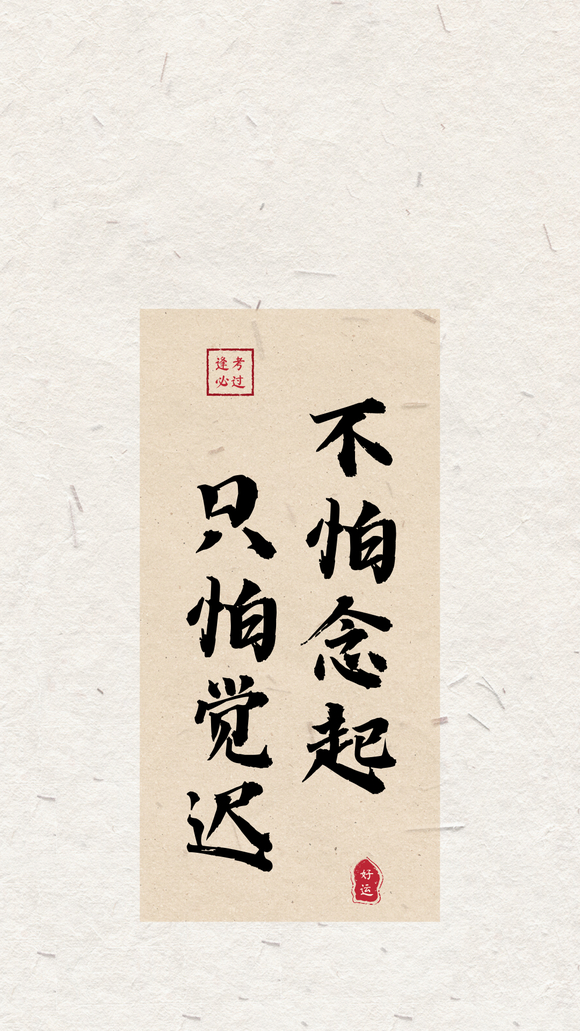 不怕念起
只怕觉迟
逢考必过
好运